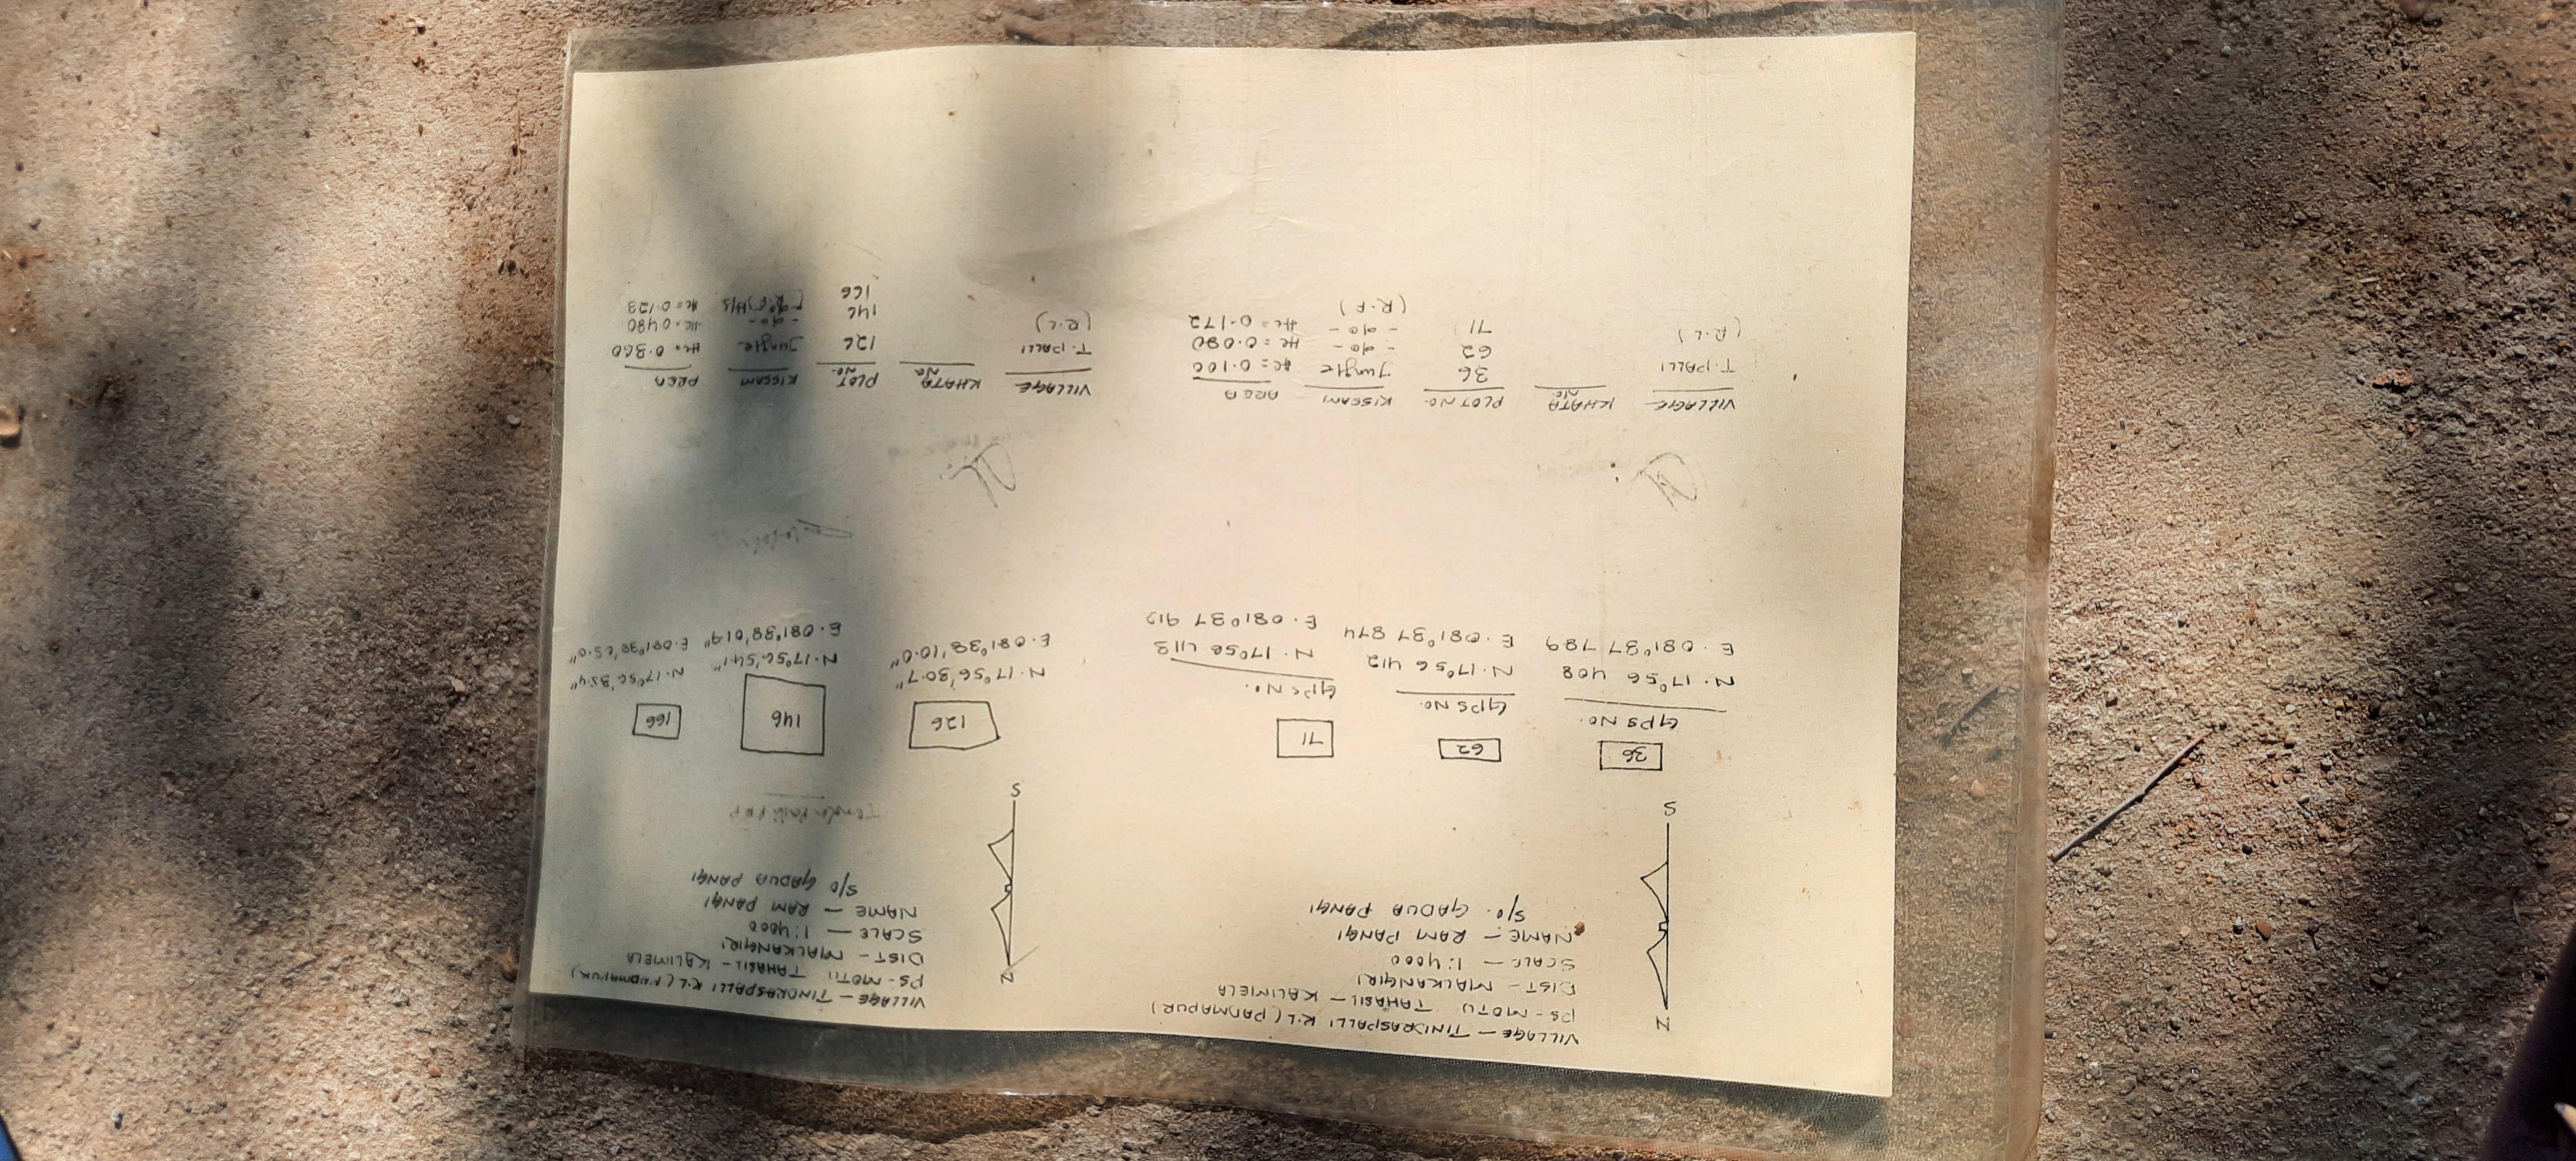 VILLAGE - TINDRASPALLI R.L (PADMAPUR)
PS - MOTU TAHASIL - KALIMELA
DIST - MALKANGIRI
SCALE - 1:4000
NAME - RAM PANGI
S/O. GADUA PANGI
N
S
36
62
71
GPS NO.
GPS NO.
GPS NO.
N. 17°56 408
N. 17°56 412
N. 17°56 413
E. 081°37 789
E. 081°37 874
E. 081°37 912
VILLAGE KHATA NO. PLOT NO. KISSAM AREA
T. PALLI 36 Jungle Hc = 0.100
(R.L) 62 - do - Hc = 0.090
71 - do - Hc = 0.172
(R.F)
VILLAGE - TINDRASPALLI R.L (PADMAPUR)
PS - MOTU TAHASIL - KALIMELA
DIST - MALKANGIRI
SCALE - 1:4000
NAME - RAM PANGI
S/O GADUA PANGI
N
S
126
146
166
N. 17°56'30.7"
N. 17°56'54.1"
N. 17°56'35.4"
E. 081°38'10.0"
E. 081°38'01.9"
VILLAGE KHATA NO. PLOT NO. KISSAM AREA
T. PALLI 126 Jungle Hc = 0.360
(R.L) 146 - do - Hc = 0.490
166 Hc = 0.123